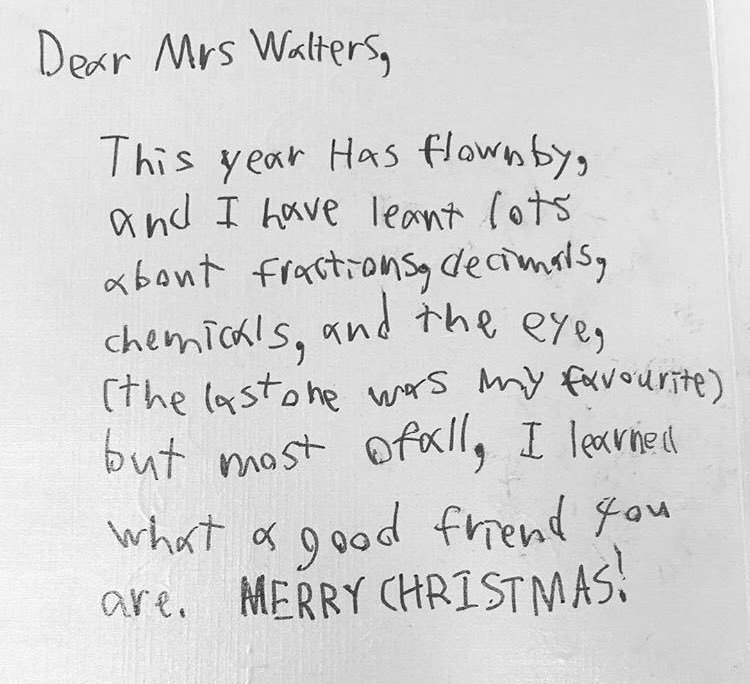 Dear Mrs Walters,
This year Has flown by,
and I have leant lots
about fractions, decimals,
chemicals, and the eye,
(the last one was my favourite)
but most of all, I learned
what a good friend you
are. MERRY CHRISTMAS!